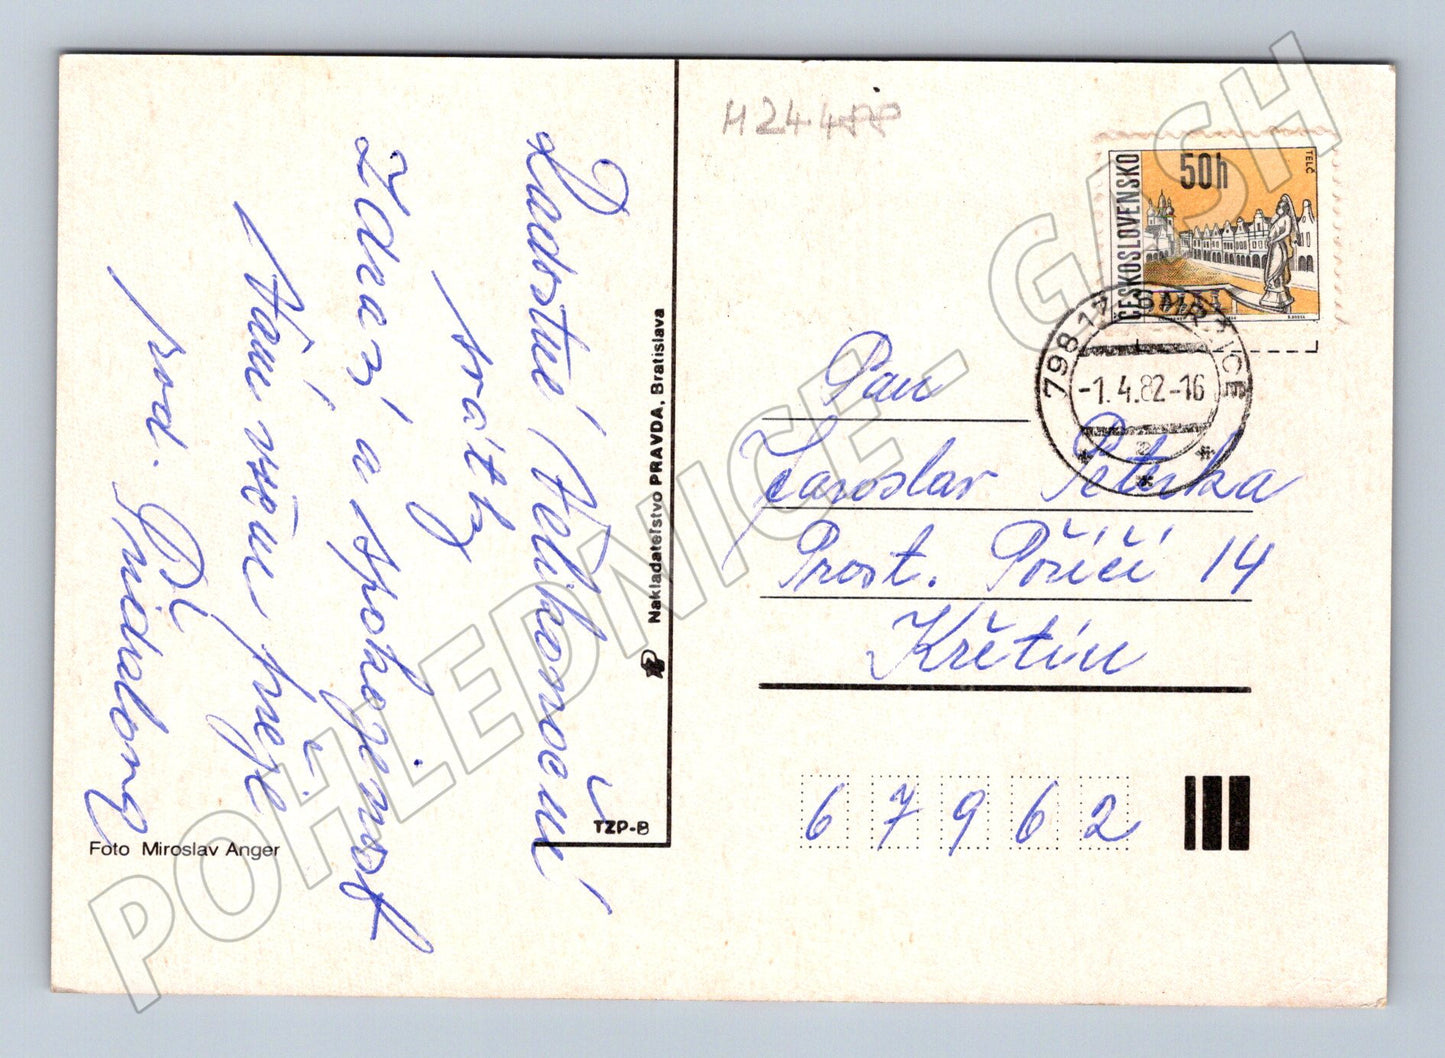 Radostné Velikonoční
svátky
zdraví a spokojenost
Vám všem přeje
rod.
Foto Miroslav Anger
Nakladateľstvo PRAVDA, Bratislava
TZP-B
H244
ČESKOSLOVENSKO
50h
TELČ
798 17 SMRŽICE
-1.4.82-16
Pan
Jaroslav Petrka
Prost. Poříčí 14
Křetín
67962
POHLEDNICE - GASH